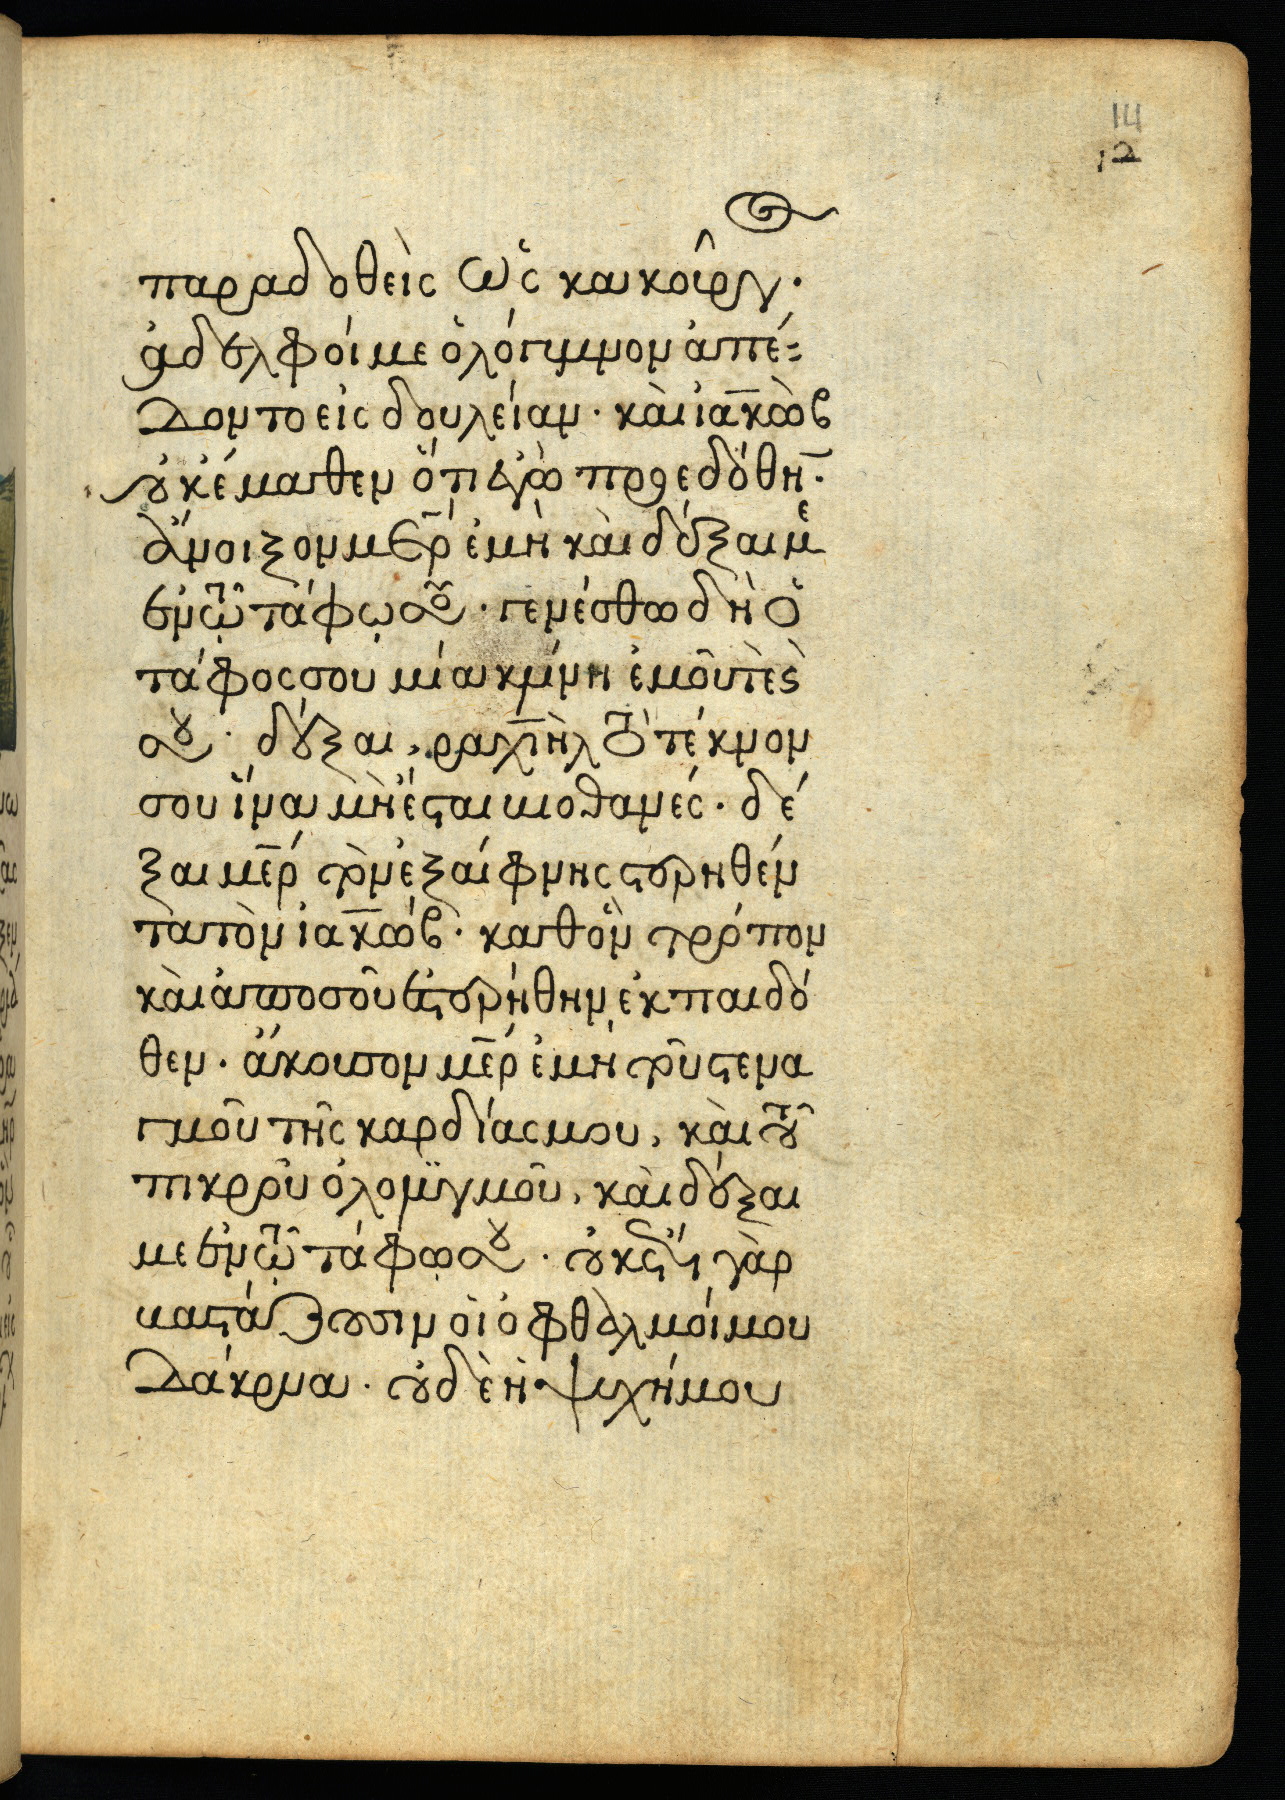 14
12
παραδοθεὶς ὡς κακοῦργ.
ἀδελφοί με ὁλόγυμνον ἀπέ=
δοντο εἰς δουλείαν. καὶ ἰακὼβ
οὐκ ἔμαθεν ὅτι ἐγὼ προεδόθην.
ἄνοιξον μῆρ ἐμὴ καὶ δέξαι με
ἐν τῷ τάφῳ σου. γενέσθω δὴ ὁ
τάφος σου μία κλίνη ἐμοῦ τὲ κ
σοῦ. δέξαι, ραχιὴλ τὸ τέκνον
σου ἵνα μὴ ἔσται βιοθανές. δέ
ξαι μῆρ τὸν ἐξαίφνης στερηθέν
τα τὸν ἰακώβ. καθ ὃν τρόπον
καὶ ἀπὸ σοῦ ἐστερήθην ἐκ παιδό
θεν. ἄκουσον μῆρ ἐμὴ τοῦ στενα
γμοῦ τῆς καρδίας μου, καὶ τοῦ
πικροῦ ὀλολυγμοῦ, καὶ δέξαι
με ἐν τῷ τάφῳ σου. οὐκ ἔτι γὰρ
καταστάζουσιν οἱ ὀφθαλμοί μου
δάκρυα. οὐδὲ ἡ ψυχή μου